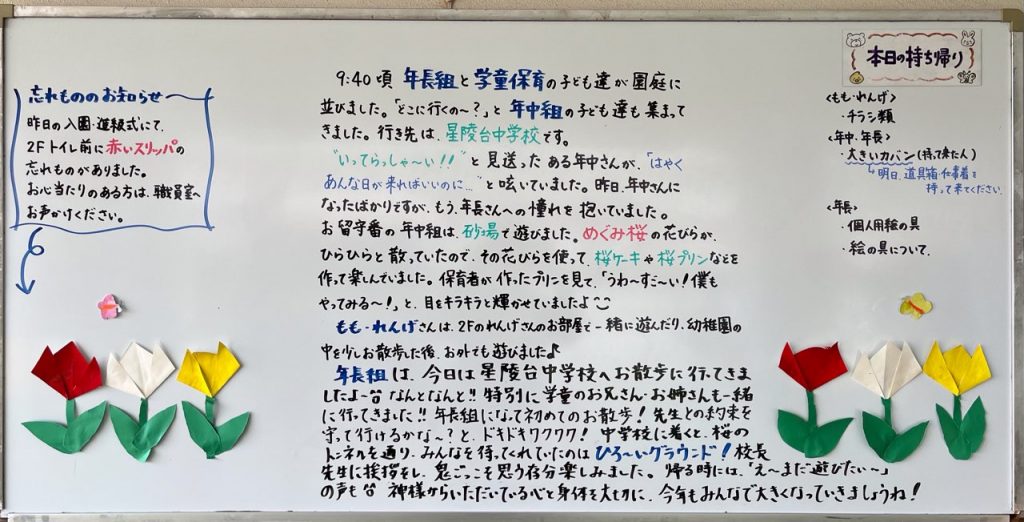 忘れもののお知らせ
昨日の入園・進級式にて、
2Fトイレ前に赤いスリッパの
忘れものがありました。
お心当たりのある方は、職員室へ
お声かけください。
9:40頃 年長組と学童保育の子ども達が園庭に
並びました。「どこに行くの〜?」と年中組の子ども達も集まって
きました。行き先は、星陵台中学校です。
"いってらっしゃ〜い!!"と見送ったある年中さんが、"はやく
あんな日が来ればいいのに…"と呟いていました。昨日、年中さんに
なったばかりですが、もう、年長さんへの憧れを抱いていました。
お留守番の年中組は、砂場で遊びました。めぐみ桜の花びらが、
ひらひらと散っていたので、その花びらを使って、桜ケーキや桜プリンなどを
作って楽しんでいました。保育者が作ったプリンを見て、「うわ〜すご〜い!僕も
やってみる〜!」と、目をキラキラと輝かせていましたよ
もも・れんげさんは、2Fのれんげさんのお部屋で一緒に遊んだり、幼稚園の
中を少しお散歩した後、お外でも遊びました♪
年長組は、今日は星陵台中学校へお散歩に行ってきま
したよー なんとなんと!!特別に学童のお兄さん・お姉さんも一緒
に行ってきました!!年長組になって初めてのお散歩!先生との約束を
守って行けるかな〜?と、ドキドキワクワク!中学校に着くと、桜の
トンネルを通り、みんなを待ってくれていたのはひろ〜いグラウンド!校長
先生に挨拶をし、鬼ごっこを思う存分楽しみました。帰る時には、「え〜まだ遊びたい〜」
の声も 神様からいただいている心と身体を大切に、今年もみんなで大きくなっていきましょうね!
本日の持ち帰り
<もも・れんげ>
・チラシ類
<年中・年長>
・大きいカバン(持って来た人)
↳明日、道具箱・仕事着を
持って来てください。
<年長>
・個人用絵の具
・絵の具について